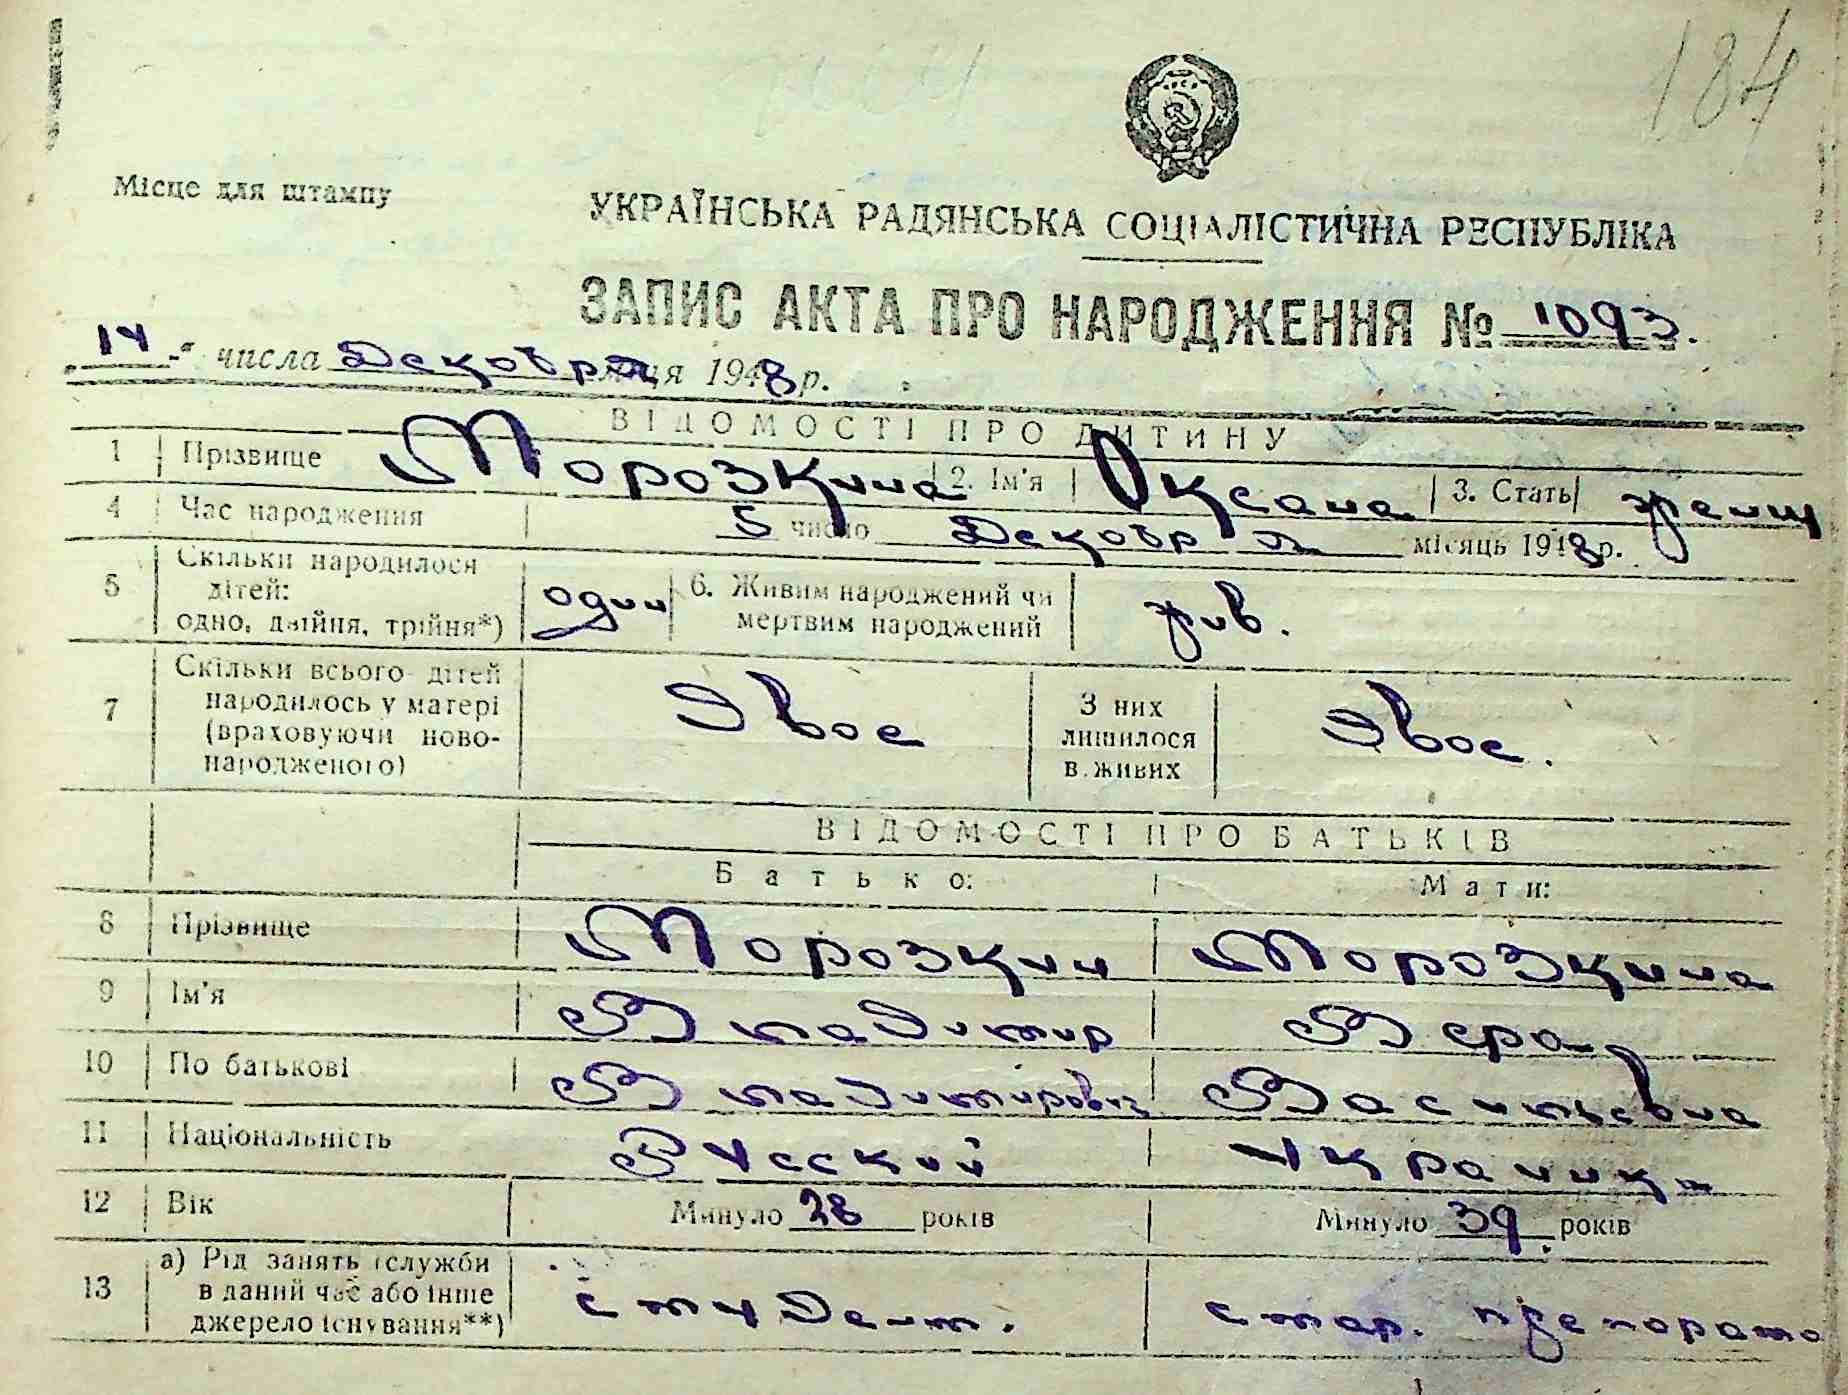 184
Місце для штампу
УКРАЇНСЬКА РАДЯНСЬКА СОЦІАЛІСТИЧНА РЕСПУБЛІКА
ЗАПИС АКТА ПРО НАРОДЖЕННЯ № 1093.
14 числа Декобря місяця 1948 р.
ВІДОМОСТІ ПРО ДИТИНУ
1 Прізвище Морозкина 2. Ім'я Оксана 3. Стать женщ
4 Час народження 5 число Декобря місяць 1948 р.
5 Скільки народилося дітей: одно, двійня, трійня*) один 6. Живим народжений чи мертвим народжений жив.
7 Скільки всього дітей народилось у матері (враховуючи ново-народженого) Двое З них лишилося в живих Двое.
ВІДОМОСТІ ПРО БАТЬКІВ
Батько: Мати:
8 Прізвище Морозкин Морозкина
9 Ім'я Владимир Вера
10 По батькові Владимирович Васильевна
11 Національність Русский Украинка
12 Вік Минуло 28 років Минуло 39 років
13 а) Рід занять (служби в даний час або інше джерело існування**) студент. стар. препарато